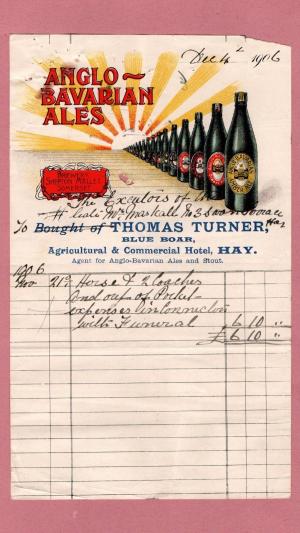 Dec 4 1906
ANGLO~
BAVARIAN
ALES
BREWERY
SHEPTON MALLET
SOMERSET
The Exculors of
Mrs Marshall No 3
Hay
To Bought of THOMAS TURNER,
BLUE BOAR,
Agricultural & Commercial Hotel, HAY.
Agent for Anglo-Bavarian Ales and Stout.
1906
Nov 21st Horse & 2 Coaches
And out of Pocket
expenses in connection
with Funeral 6 10 "
£6 10 "